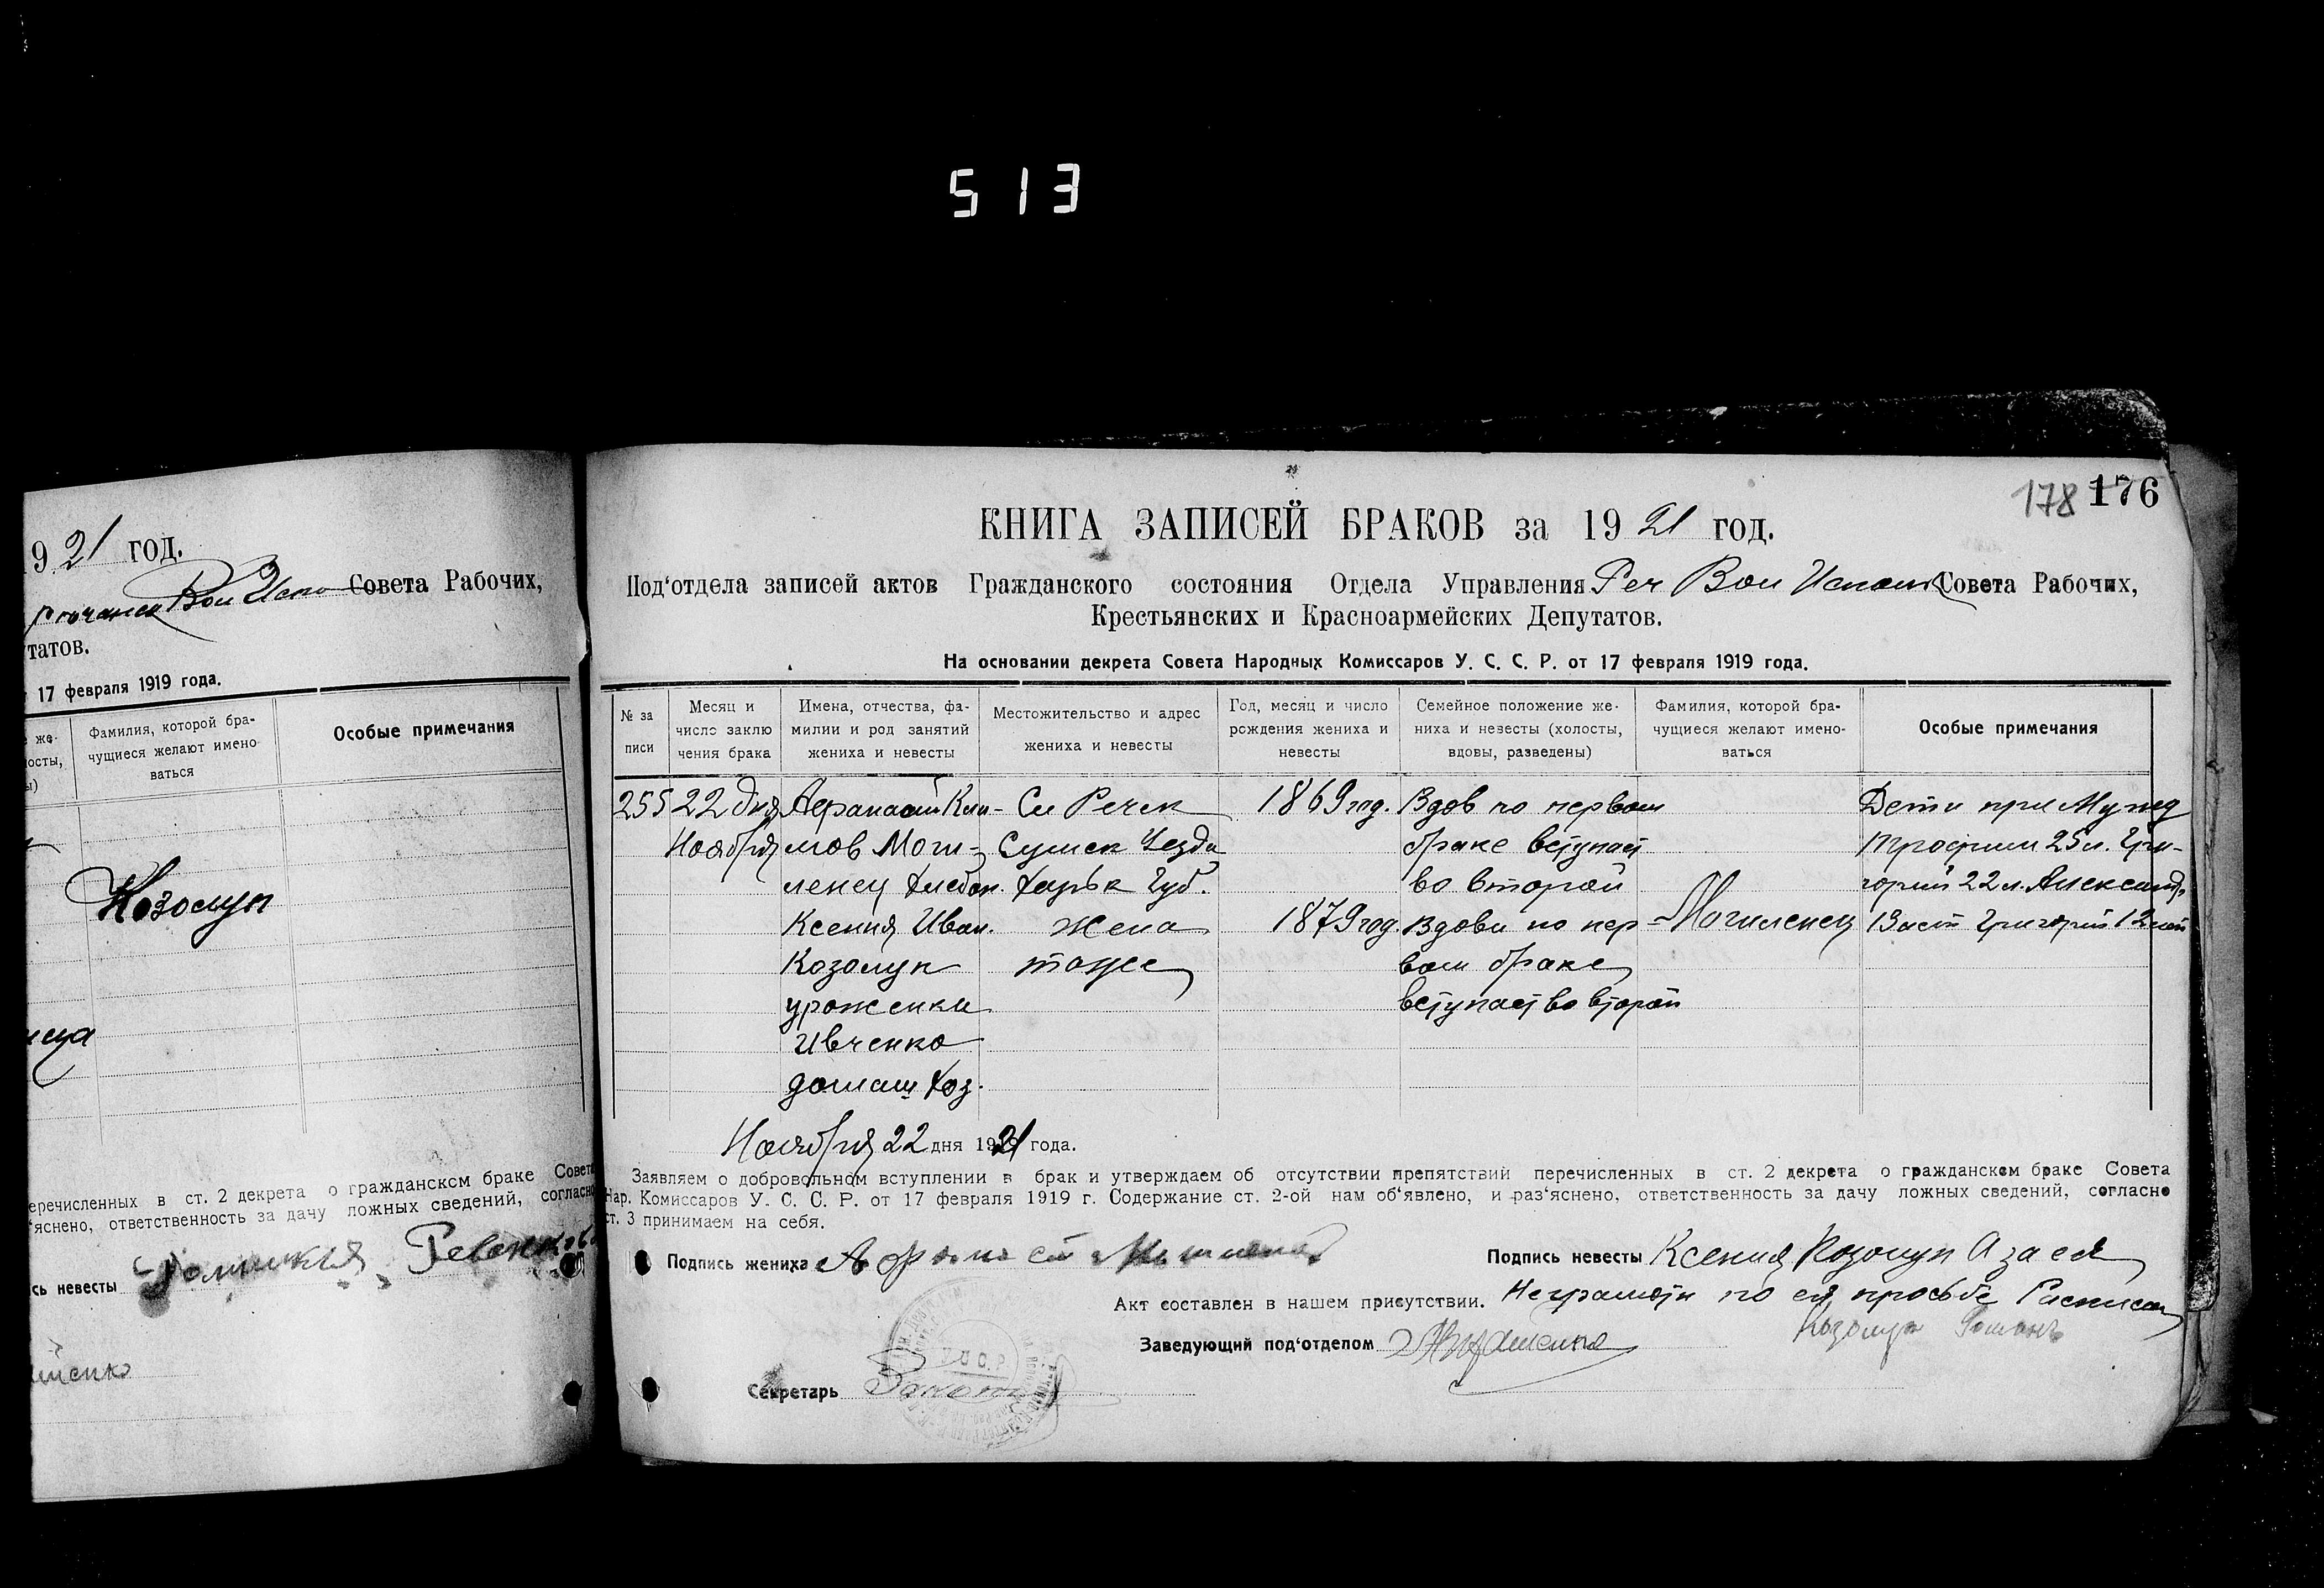 513
19 21 год.
Вол Испо Совета Рабочих,
татов.
17 февраля 1919 года.
же-
лосты,
ы)
Фамилия, которой бра-
чущиеся желают имено-
ваться
Особые примечания
Козолуп
перечисленных в ст. 2 декрета о гражданском браке Совета
'яснено, ответственность за дачу ложных сведений, согласно
сь невесты
178 176
КНИГА ЗАПИСЕЙ БРАКОВ за 19 21 год.
Под'отдела записей актов Гражданского состояния Отдела Управления Реч Вол Исполк Совета Рабочих,
Крестьянских и Красноармейских Депутатов.
На основании декрета Совета Народных Комиссаров У. С. С. Р. от 17 февраля 1919 года.
№ за
писи
Месяц и
число заклю
чения брака
Имена, отчества, фа-
милии и род занятий
жениха и невесты
Местожительство и адрес
жениха и невесты
Год, месяц и число
рождения жениха и
невесты
Семейное положение же-
ниха и невесты (холосты,
вдовы, разведены)
Фамилия, которой бра-
чущиеся желают имено-
ваться
Особые примечания
255 22 дня Афанасий Кли- Сл Речек 1869 год. Вдов по первом Дети при Муже
Ноября мов Моги- Сумск Уезда браке вступает Трофим 25 л. Гри-
ленец хлебоп. Харьк Губ. во второй горий 22 л. Александ.
Ксения Иван. жена 1879 год. Вдова по пер- Могиленец 13 лет Григорий 12 лет
Козолуп тоже вом браке
уроженка вступает во второй
Ивченко
домаш хоз.
Ноября 22 дня 1921 года.
Заявляем о добровольном вступлении в брак и утверждаем об отсутствии препятствий перечисленных в ст. 2 декрета о гражданском браке Совета
Нар. Комиссаров У. С. С. Р. от 17 февраля 1919 г. Содержание ст. 2-ой нам об'явлено, и раз'яснено, ответственность за дачу ложных сведений, согласно
ст. 3 принимаем на себя.
Подпись жениха Подпись невесты Ксения Козолуп А за ея
Акт составлен в нашем присутствии. Неграмотн по ея просьбе Расписал
Козолуп Романъ
Заведующий под'отделом
Секретарь